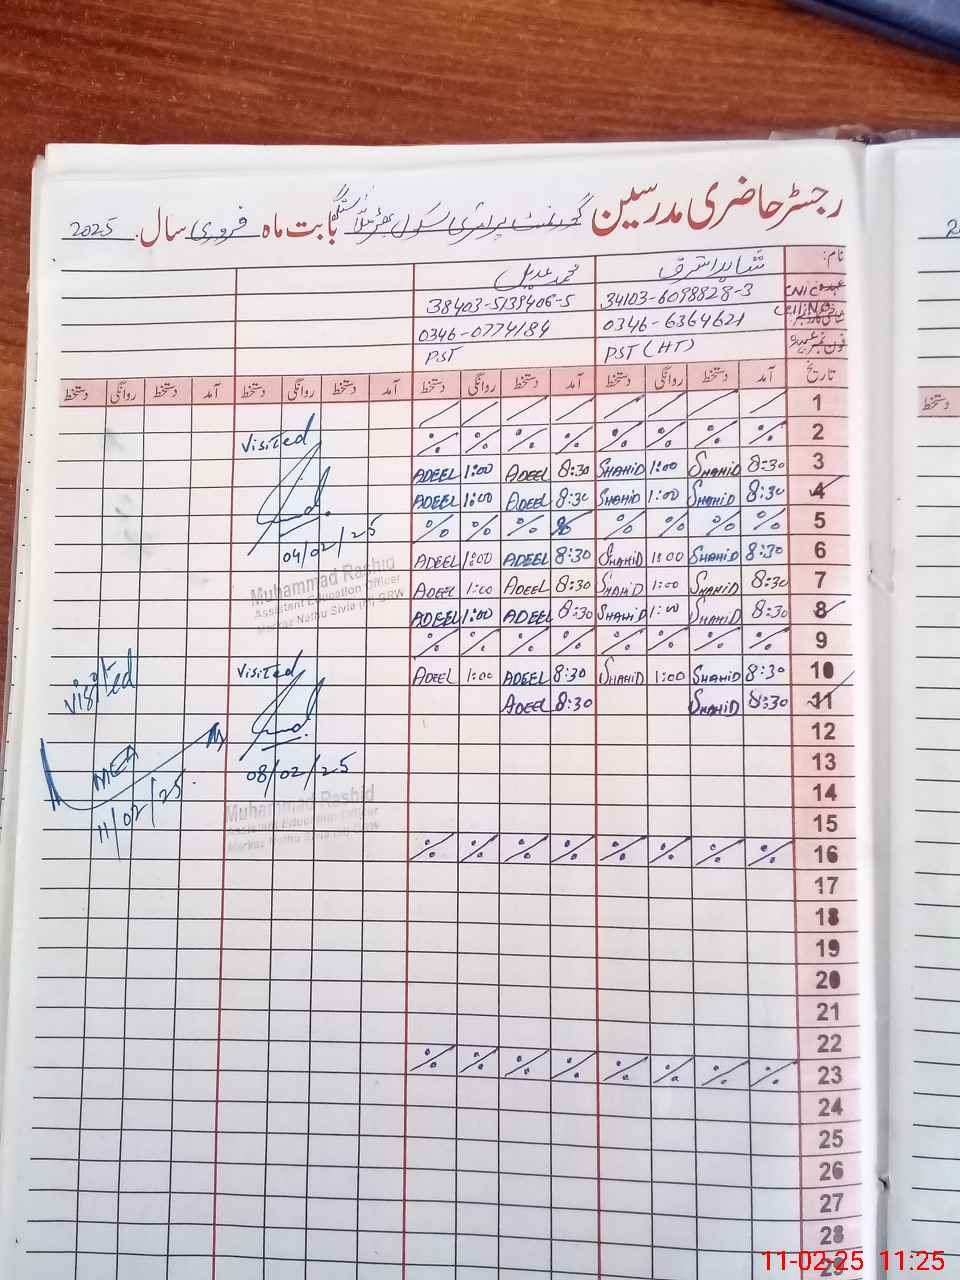 رجسٹر حاضری مدرسین گورنمنٹ پرائمری سکول بابت ماہ فروری سال 2025
نام: شاہد اشرف محمد عدیل
CNIC 34103-6098828-3 38403-5139406-5
Cell No 0346-6364621 0346-0774184
PST (HT) PST
تاریخ آمد دستخط روانگی دستخط آمد دستخط روانگی دستخط آمد دستخط روانگی دستخط آمد دستخط روانگی دستخط
1
Visited % % % % % % % % 2
ADEEL 1:00 ADEEL 8:30 SHAHID 1:00 SHAHID 8:30 3
ADEEL 1:00 ADEEL 8:30 SHAHID 1:00 SHAHID 8:30 4
04/02/25 % % % % % % % % 5
ADEEL 1:00 ADEEL 8:30 SHAHID 1:00 SHAHID 8:30 6
Muhammad Rashid
Assistant Education Officer
Markaz Nathu Sivia (M) GRW
ADEEL 1:00 ADEEL 8:30 SHAHID 1:00 SHAHID 8:30 7
ADEEL 1:00 ADEEL 8:30 SHAHID 1:00 SHAHID 8:30 8
% % % % % % % % 9
Visited Visited ADEEL 1:00 ADEEL 8:30 SHAHID 1:00 SHAHID 8:30 10
ADEEL 8:30 SHAHID 8:30 11
12
MEA 08/02/25 13
11/02/25 14
Muhammad Rashid
Assistant Education Officer
Markaz Nathu Sivia (M) GRW
15
% % % % % % % % 16
17
18
19
20
21
22
% % % % % % % % 23
24
25
26
27
28
29
دستخط
11-02-25 11:25